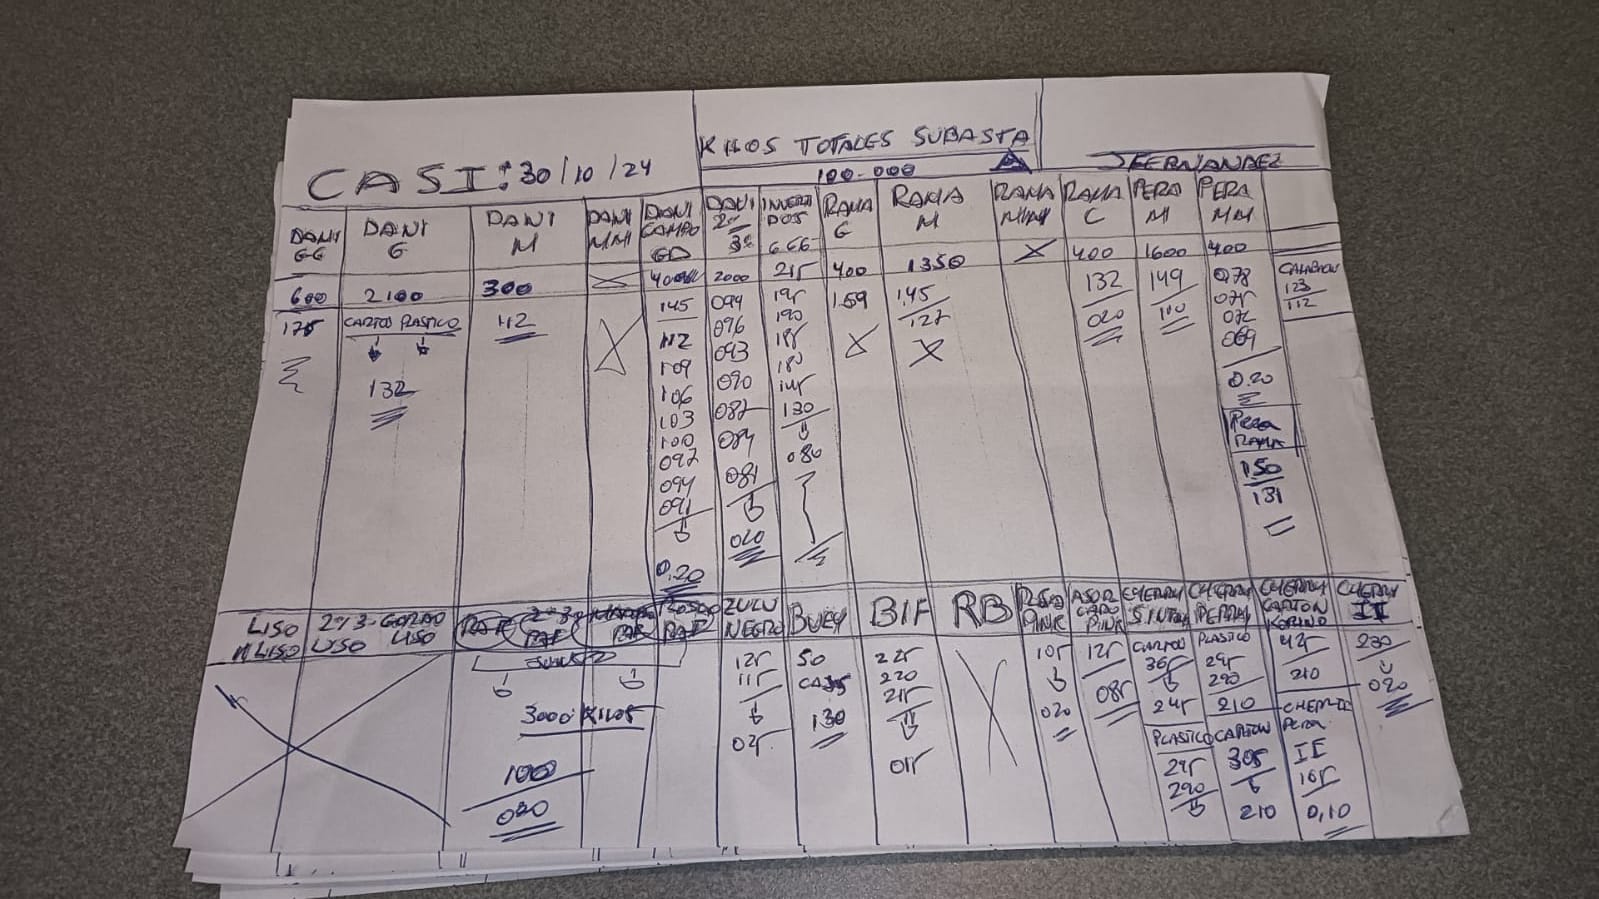 CASI: 30/10/24
KILOS TOTALES SUBASTA
100.000
JFERNANDEZ
DANI GG
DANI G
DANI M
DANI MM
DANI CAMPO GD
DANI 2ª 3ª
INVERTI DOS GGG
RAMA G
RAMA M
RAMA MMM
RAMA C
PERA M
PERA MM
600
2100
300
2000
215
400
1350
400
1600
400
175
CARTON PLASTICO
132
112
145
112
109
106
103
100
097
094
091
0.20
099
096
093
090
087
084
081
020
195
190
185
180
145
130
080
159
1.45
127
132
020
149
110
078
075
072
069
0.20
PERA RAMA
150
131
CALABACIN
123
112
LISO M LISO
2ª 3ª LISO
GORDO LISO
2ª 3ª
ZULU NEGRO
BUEY
BIF
RB
ROSA PINK
ASUR CARO PINK
CHERRY S.INTRA
CHERRY PERA
CHERRY CARTON KORINO
CHERRY II
3000 KILOS
100
080
125
115
025
50
CAJS
130
225
220
215
015
105
020
125
085
CARTON
365
245
PLASTICO
295
290
PLASTICO
295
290
210
CARTON
305
210
425
210
CHERRIE PERA
II
165
0,10
230
020